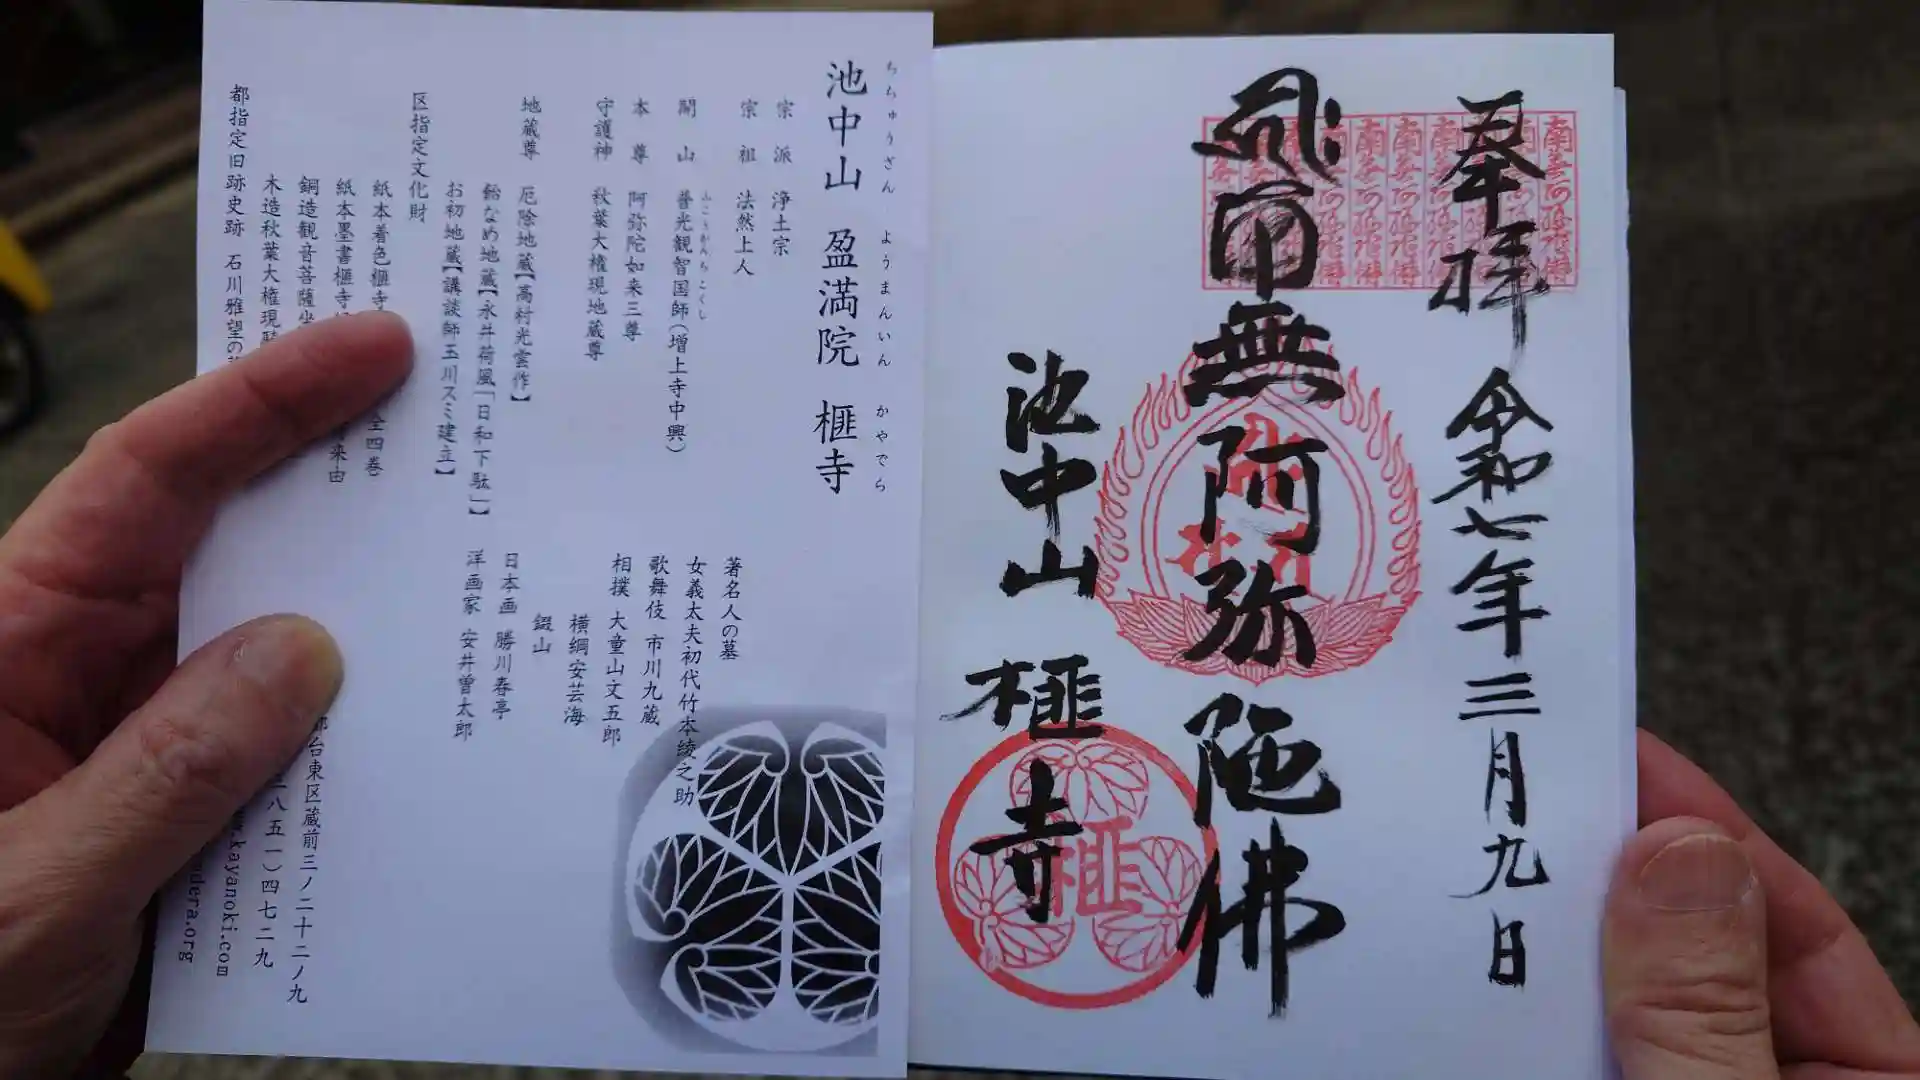 奉拝 令和七年三月九日
南無阿弥陀佛
池中山 榧寺
榧
ちちゅうざん ようまんいん かやでら
池中山 盈満院 榧寺
宗派 浄土宗
宗祖 法然上人
ふこうかんちこくし
開山 普光観智国師(増上寺中興)
本尊 阿弥陀如来三尊
守護神 秋葉大権現地蔵尊
地蔵尊 厄除地蔵【高村光雲作】
飴なめ地蔵【永井荷風「日和下駄」】
お初地蔵【講談師玉川スミ建立】
区指定文化財
紙本着色榧寺 全四巻
紙本墨書榧寺 来由
銅造観音菩薩坐
木造秋葉大権現
都指定旧跡史跡 石川雅望の
著名人の墓
女義太夫初代竹本綾之助
歌舞伎 市川九蔵
相撲 大童山文五郎
横綱安芸海
錣山
日本画 勝川春亭
洋画家 安井曾太郎
台東区蔵前三ノ二十二ノ九
八五一)四七二九
kayanoki.com
dera.org